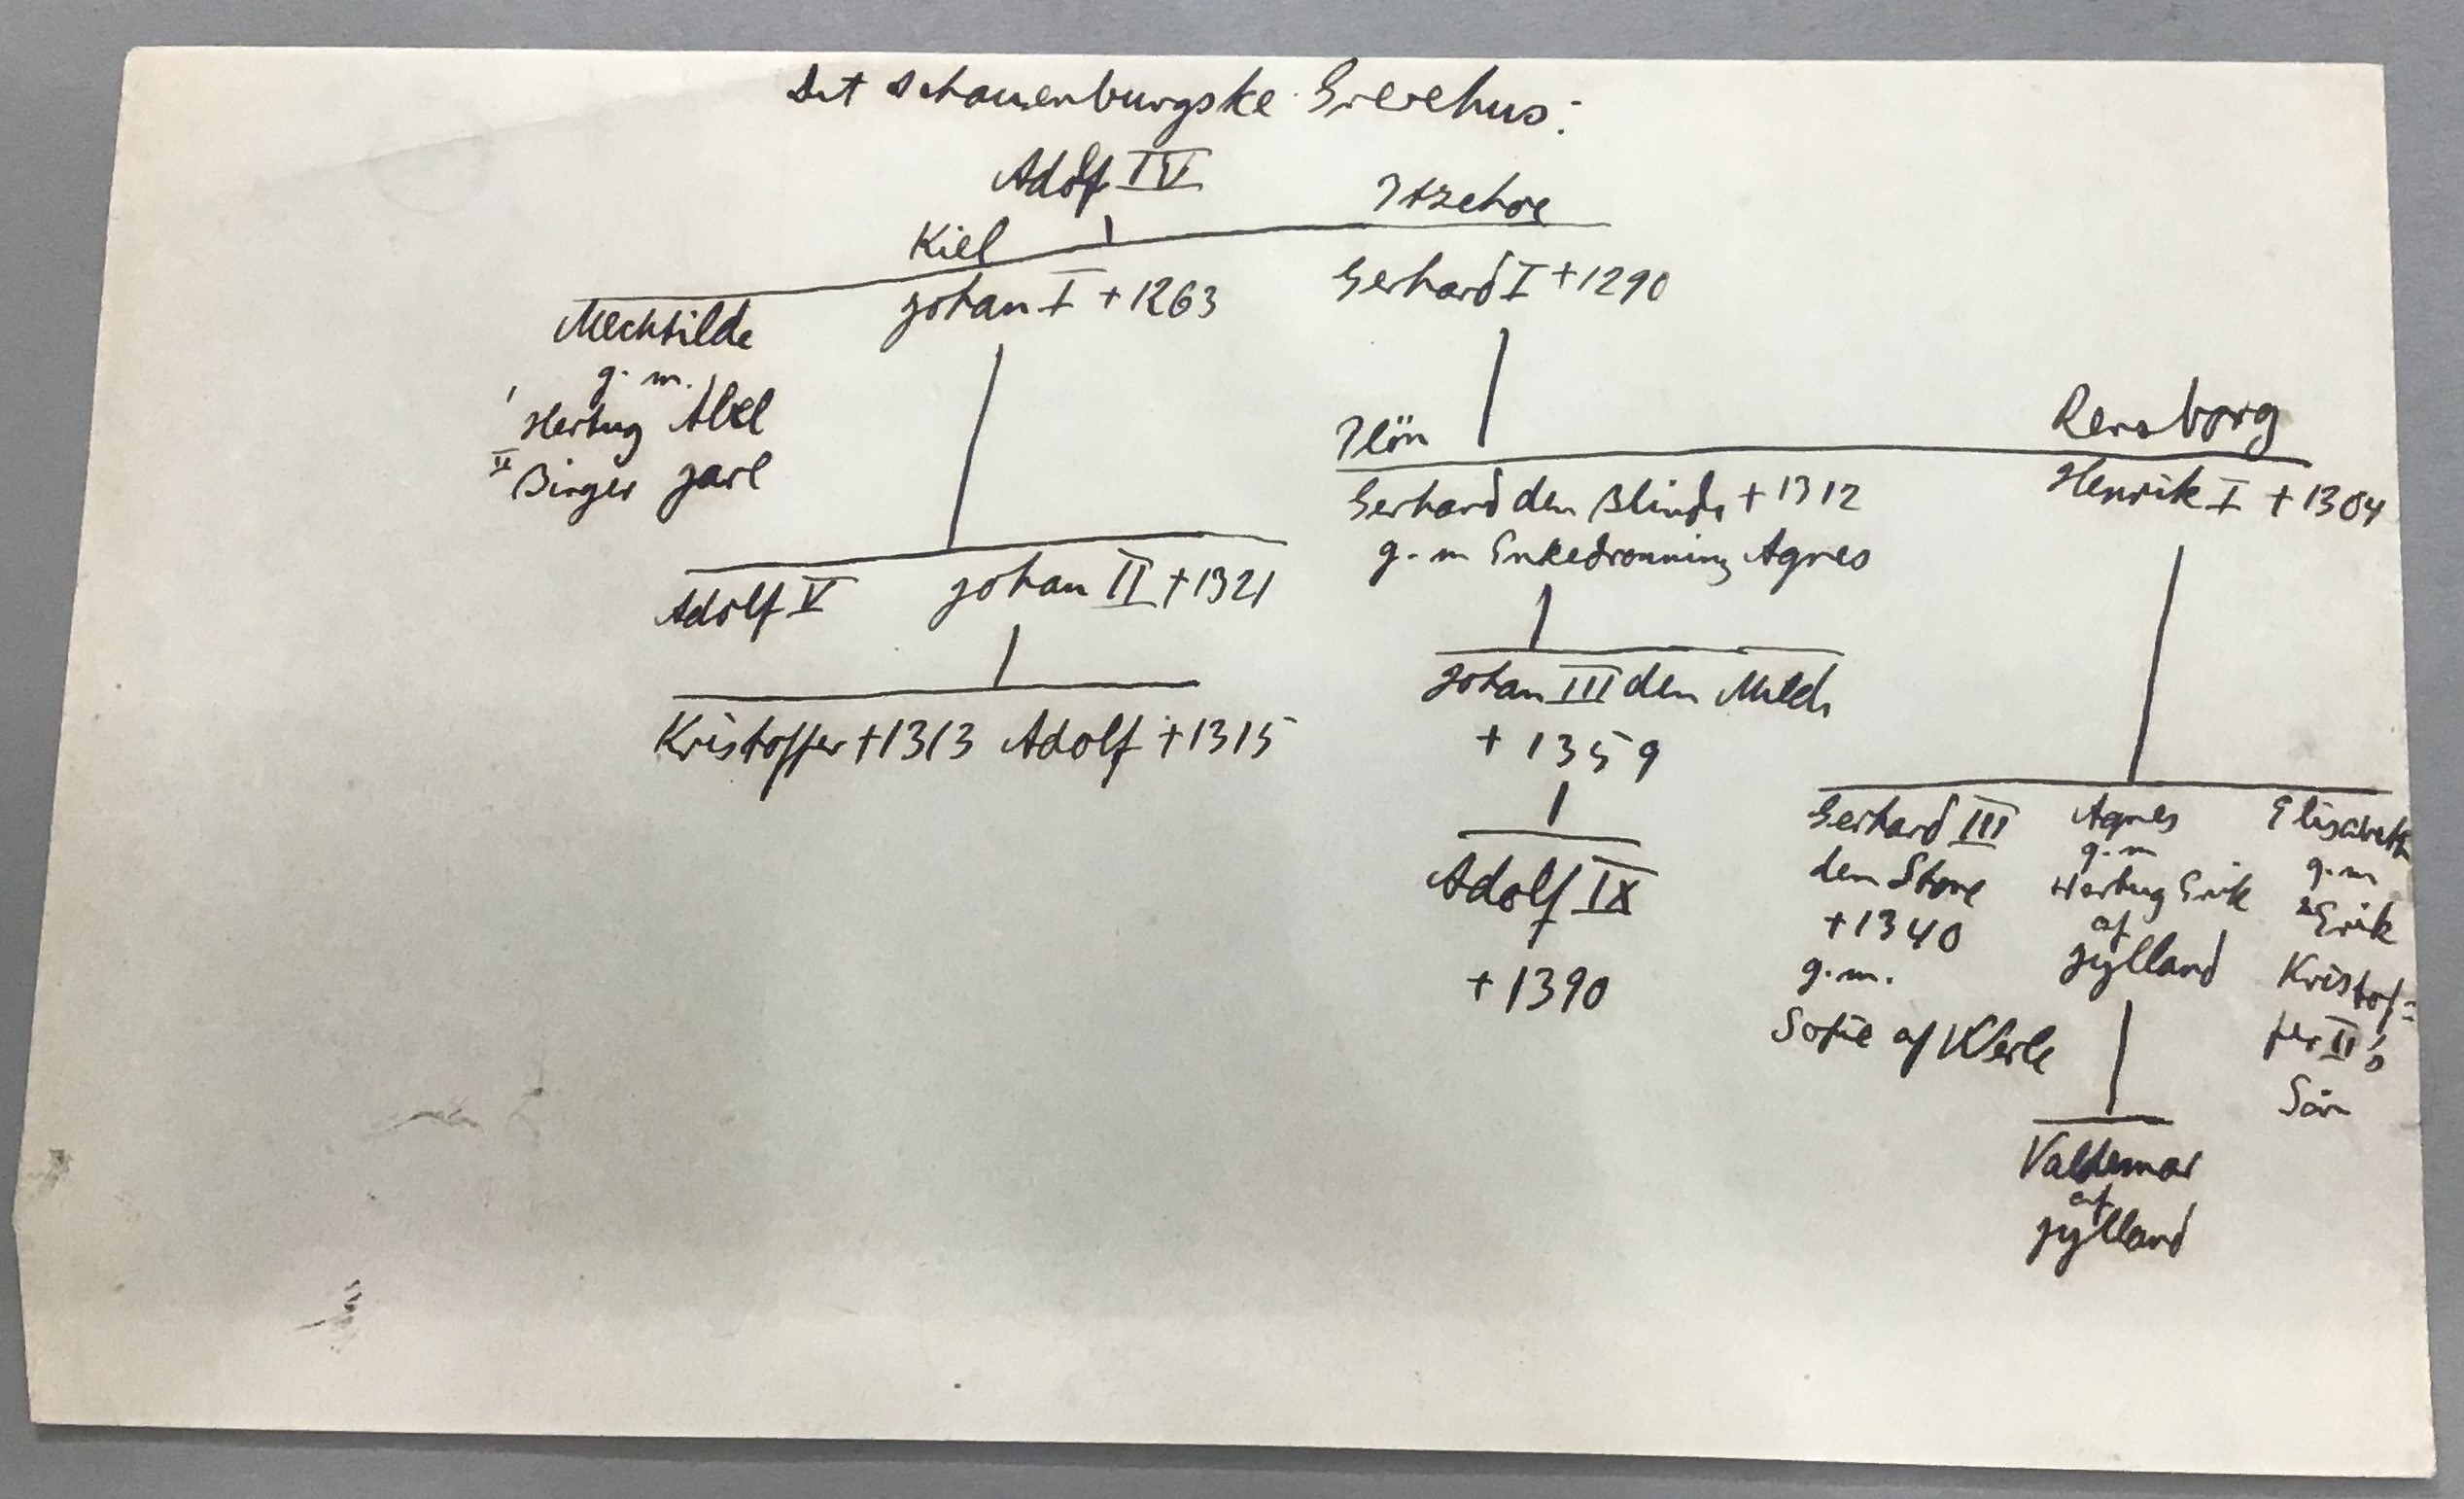 Det Schauenburgske Grevehus:
Adolf IV
Kiel
Itzehoe
Mechtilde
g. m.
I Hertug Abel
II Birger Jarl
Johan I +1263
Gerhard I +1290
Plön
Rensborg
Gerhard den Blinde +1312
g. m Enkedronning Agnes
Henrik I +1304
Adolf V
Johan II +1321
Kristoffer +1313
Adolf +1315
Johan III den Milde
+ 1359
Adolf IX
+ 1390
Gerhard III
den Store
+1340
g. m.
Sofie af Werle
Agnes
g. m
Hertug Erik
af
Jylland
Valdemar
af
Jylland
Elisabeth
g. m
Erik
Kristof=
fer II's
Sön